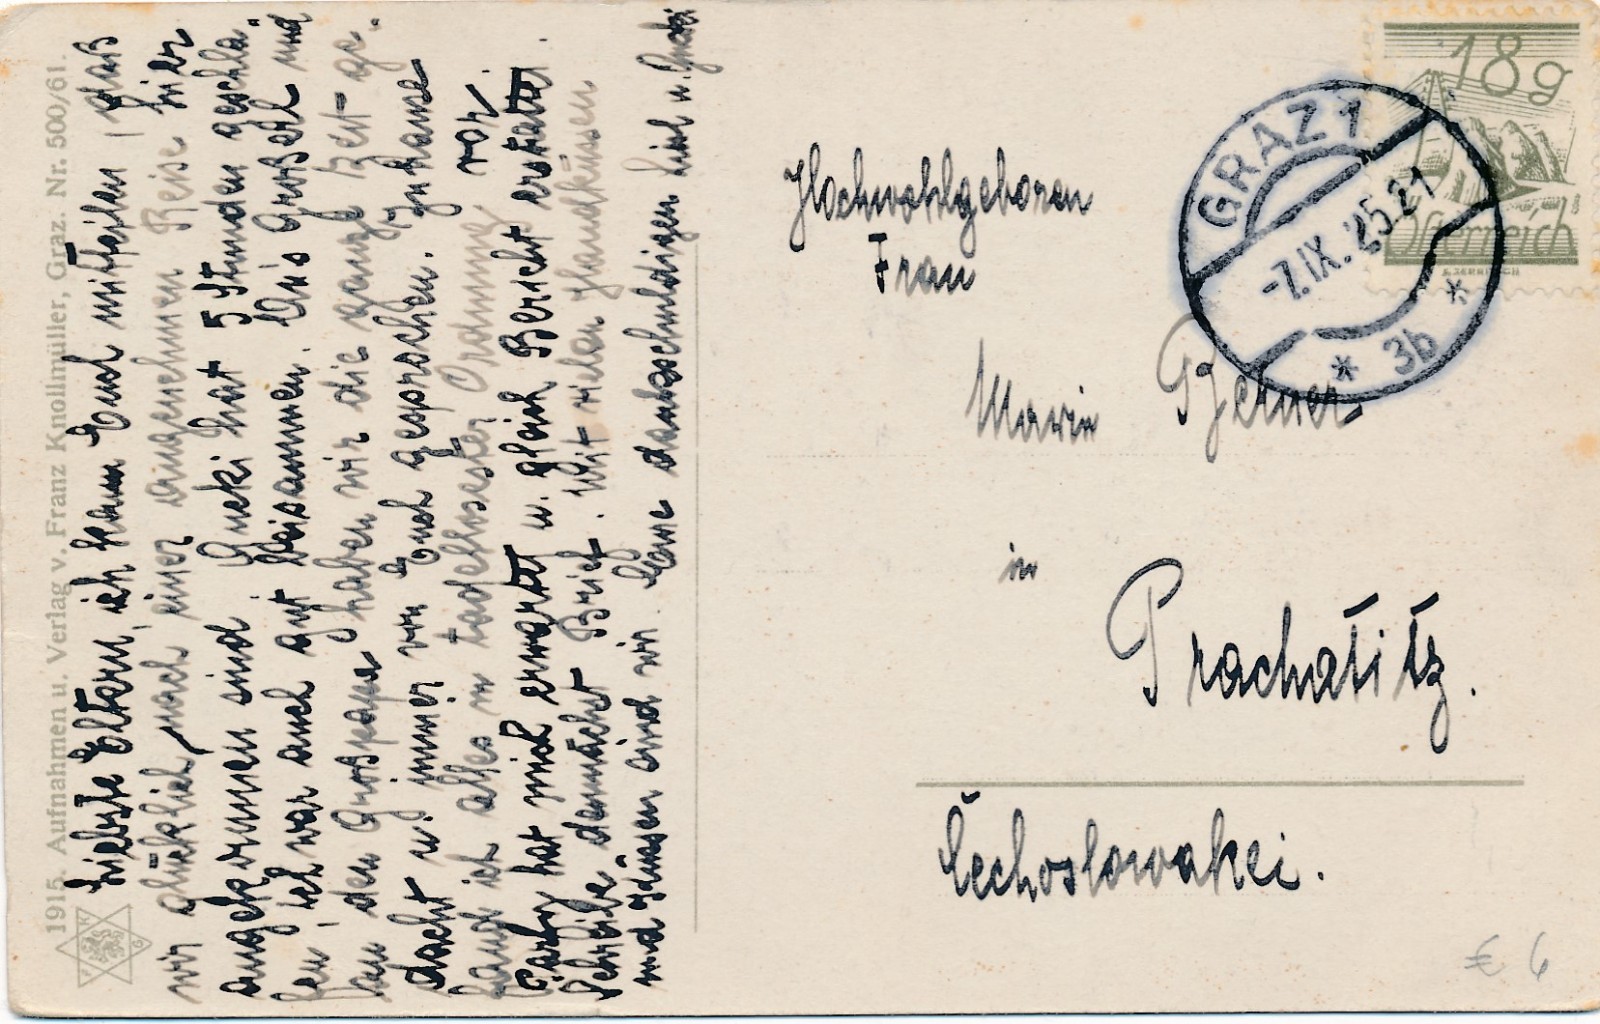 1915. Aufnahmen u. Verlag v. Franz Knollmüller, Graz. Nr. 500/61.
Liebste Eltern, ich kann Euch mitteilen, daß
wir glücklich nach einer angenehmen Reise hier
angekommen sind. Gucki hat 5 Stunden geschla-
fen, ich war auch gut beisammen. Aus Großerl und
den Grospapa haben wir die ganze Zeit ge-
dacht u. immer von Euch gesprochen. Zuhause
fand ich alles in tadellosester Ordnung vor.
hat mich erwartet u. gleich Bericht erstattet.
Schreibe demnächst Brief. Mit vielen Handküssen
und Grüsen sind wir Eure dankschuldigen Liesl u. Gucki
Hochwohlgeboren
Frau
Marie
in
Prachatitz.
Čechoslowakei.
GRAZ 1
-7.IX.25.21
* 3b *
18 g
Österreich
€ 6